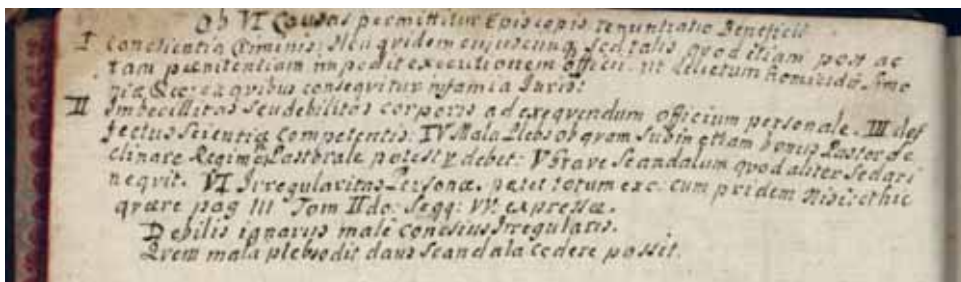 Ob VI Causas permittitur Episcopis renuntiatio Beneficii
I Conscientia Criminis: Non quidem cujuscunq, sed talis quod etiam post ac
tam pænitentiam impedit executionem officii. ut delictum homicidii, Simo
niæ &c: ex quibus consequitur infamia Juris:
II Imbecillitas seu debilitas corporis ad exequendum officium personale. III def
fectus Scientiæ competentis. IV Mala Plebs ob quam subin etiam bonus Pastor de
clinare Regimen Pastorale potest & debet: V Grave Scandalum quod aliter sedari
nequit. VI Irregularitas Personæ. patet totum ex c: cum pridem et hic
quære pag III Tom IIdo: Seqq: VV: expressa.
Debilis ignarus male conscius Irregularis.
Quem mala plebs odit dans scandala cedere possit.